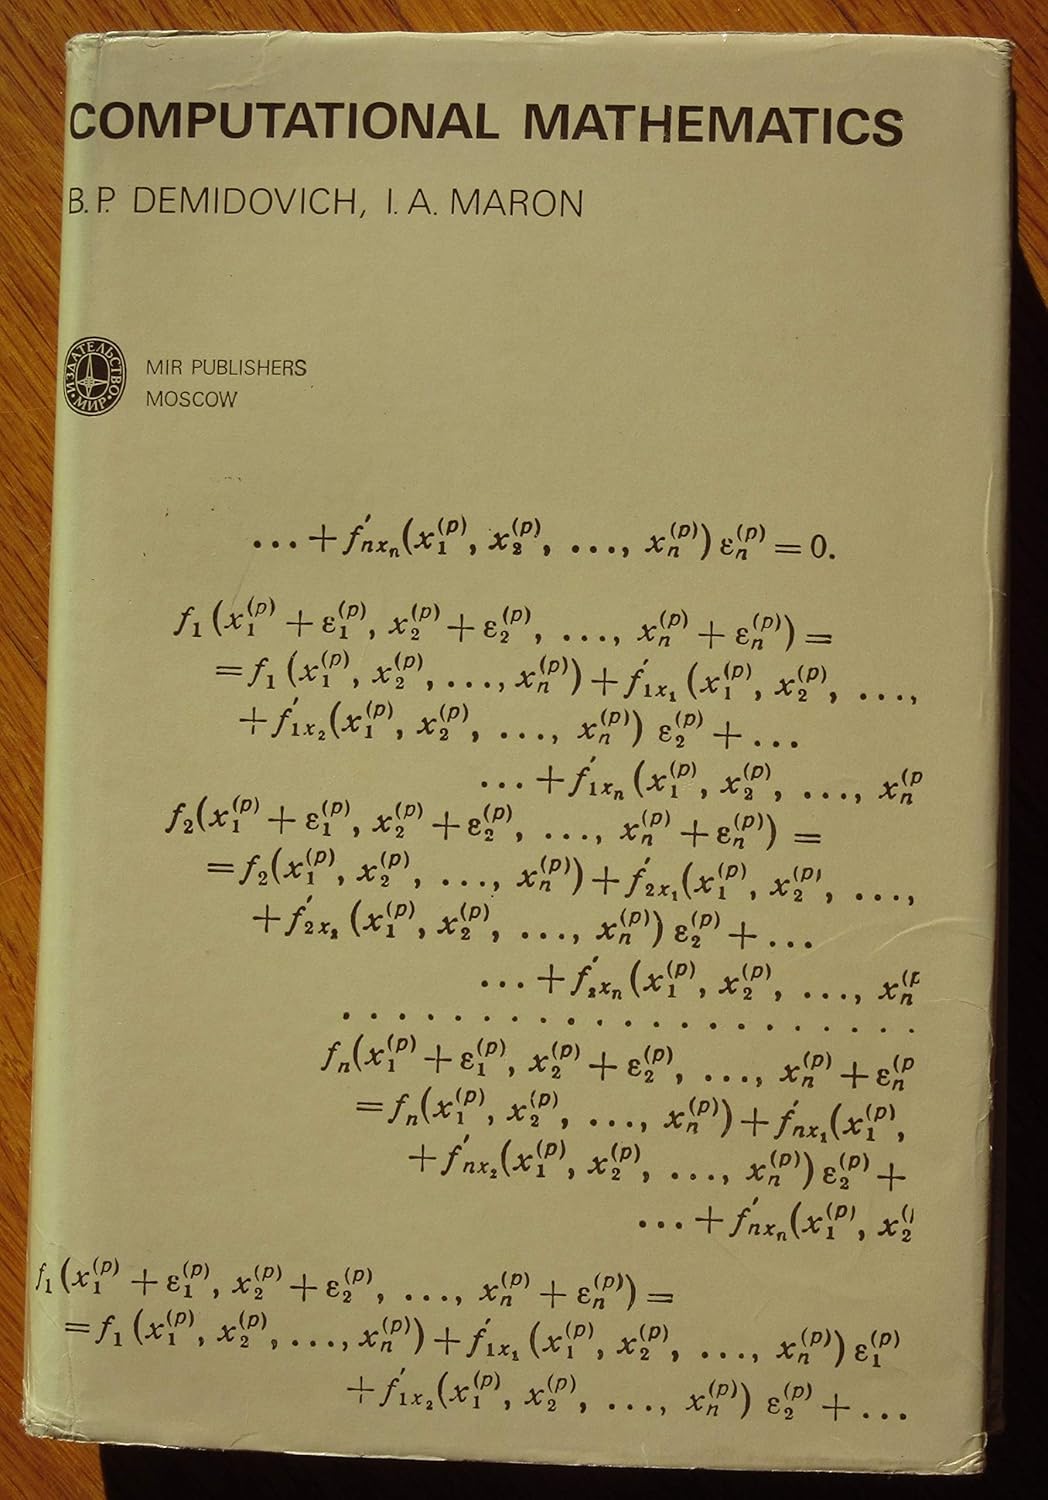 COMPUTATIONAL MATHEMATICS
B. P. DEMIDOVICH, I. A. MARON
ИЗДАТЕЛЬСТВО · МИР ·
MIR PUBLISHERS
MOSCOW
... + f'ₙₓₙ(x₁⁽ᵖ⁾, x₂⁽ᵖ⁾, ..., xₙ⁽ᵖ⁾) εₙ⁽ᵖ⁾ = 0.
f₁ (x₁⁽ᵖ⁾ + ε₁⁽ᵖ⁾, x₂⁽ᵖ⁾ + ε₂⁽ᵖ⁾, ..., xₙ⁽ᵖ⁾ + εₙ⁽ᵖ⁾) =
= f₁ (x₁⁽ᵖ⁾, x₂⁽ᵖ⁾, ..., xₙ⁽ᵖ⁾) + f'₁ₓ₁ (x₁⁽ᵖ⁾, x₂⁽ᵖ⁾, ...,
+ f'₁ₓ₂(x₁⁽ᵖ⁾, x₂⁽ᵖ⁾, ..., xₙ⁽ᵖ⁾) ε₂⁽ᵖ⁾ + ...
... + f'₁ₓₙ (x₁⁽ᵖ⁾, x₂⁽ᵖ⁾, ..., xₙ⁽ᵖ
f₂(x₁⁽ᵖ⁾ + ε₁⁽ᵖ⁾, x₂⁽ᵖ⁾ + ε₂⁽ᵖ⁾, ..., xₙ⁽ᵖ⁾ + εₙ⁽ᵖ⁾) =
= f₂(x₁⁽ᵖ⁾, x₂⁽ᵖ⁾, ..., xₙ⁽ᵖ⁾) + f'₂ₓ₁(x₁⁽ᵖ⁾, x₂⁽ᵖ⁾, ...,
+ f'₂ₓ₂ (x₁⁽ᵖ⁾, x₂⁽ᵖ⁾, ..., xₙ⁽ᵖ⁾) ε₂⁽ᵖ⁾ + ...
... + f'₂ₓₙ (x₁⁽ᵖ⁾, x₂⁽ᵖ⁾, ..., xₙ⁽ᵖ
. . . . . . . . . . . . . . . . . . . . .
fₙ(x₁⁽ᵖ⁾ + ε₁⁽ᵖ⁾, x₂⁽ᵖ⁾ + ε₂⁽ᵖ⁾, ..., xₙ⁽ᵖ⁾ + εₙ⁽ᵖ
= fₙ(x₁⁽ᵖ⁾, x₂⁽ᵖ⁾, ..., xₙ⁽ᵖ⁾) + f'ₙₓ₁(x₁⁽ᵖ⁾,
+ f'ₙₓ₂(x₁⁽ᵖ⁾, x₂⁽ᵖ⁾, ..., xₙ⁽ᵖ⁾) ε₂⁽ᵖ⁾ +
... + f'ₙₓₙ(x₁⁽ᵖ⁾, x₂⁽
f₁ (x₁⁽ᵖ⁾ + ε₁⁽ᵖ⁾, x₂⁽ᵖ⁾ + ε₂⁽ᵖ⁾, ..., xₙ⁽ᵖ⁾ + εₙ⁽ᵖ⁾) =
= f₁ (x₁⁽ᵖ⁾, x₂⁽ᵖ⁾, ..., xₙ⁽ᵖ⁾) + f'₁ₓ₁ (x₁⁽ᵖ⁾, x₂⁽ᵖ⁾, ..., xₙ⁽ᵖ⁾) ε₁⁽ᵖ⁾
+ f'₁ₓ₂(x₁⁽ᵖ⁾, x₂⁽ᵖ⁾, ..., xₙ⁽ᵖ⁾) ε₂⁽ᵖ⁾ + ...